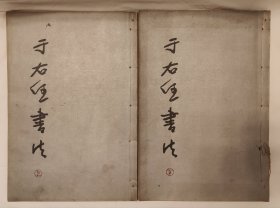 于右任書法
上
于右任書法
下